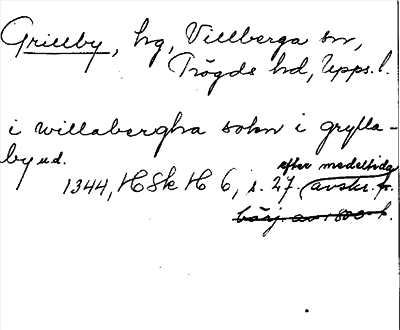 Grillby, hg, Villberga sn,
Trögds hd, Upps. l.
i willabergha sokn i grylla-
by u.d.
efter medeltida
1344, HSk H 6, s. 27. avskr. fr.
börj. av 1800-t.